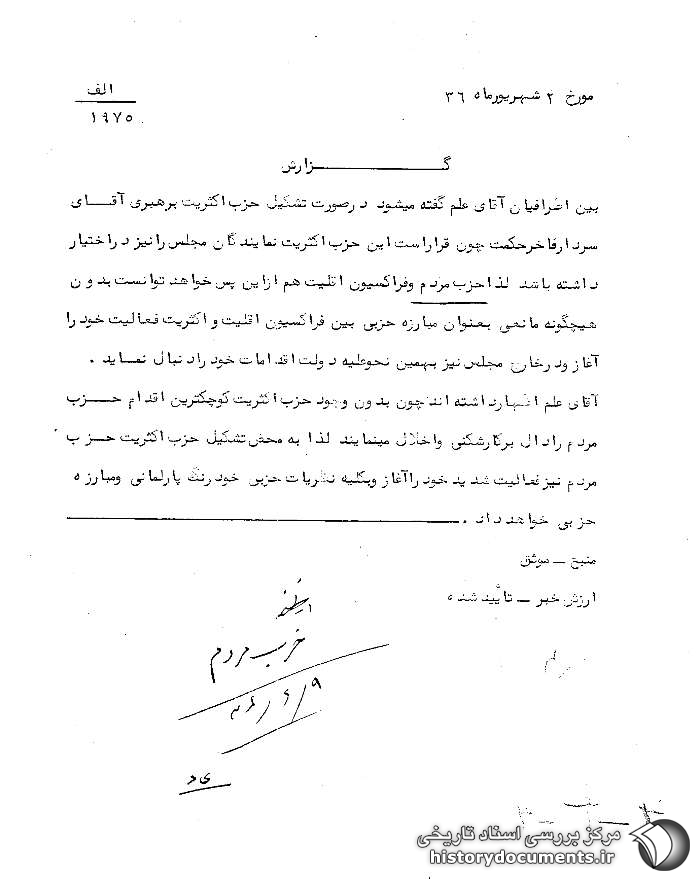 الف
۱۹۷۵
مورخ ۲ شهریورماه ۳۶
گـــزارش
بین اطرافیان آقای علم گفته میشود درصورت تشکیل حزب اکثریت برهبری آقـــای
سردارفاخرحکمت چون قراراست این حزب اکثریت نمایندگان مجلس رانیز دراختیار
داشته باشد لذاحزب مردم وفراکسیون اقلیت هم ازاین پس خواهد توانست بدون
هیچگونه مانعی بعنوان مبارزه حزبی بین فراکسیون اقلیت و اکثریت فعالیت خودرا
آغاز ودرخارج مجلس نیز بهمین نحوعلیه دولت اقدامات خودرادنبال نماید .
آقای علم اظهارداشته اندچون بدون وجود حزب اکثریت کوچکترین اقدام حـــزب
مردم رادال برکارشکنی واخلال مینمایند لذا به محض تشکیل حزب اکثریت حزب
مردم نیزفعالیت شدید خودراآغاز وبکلیه نظریات حزبی خودرنگ پارلمانی ومبارزه
حزبی خواهدداد .
منبع ــ موثق
ارزش خبر ــ تأیید شده
حزب مردم
۳۶/۶/۹
مرکز بررسی اسناد تاریخی
historydocuments.ir